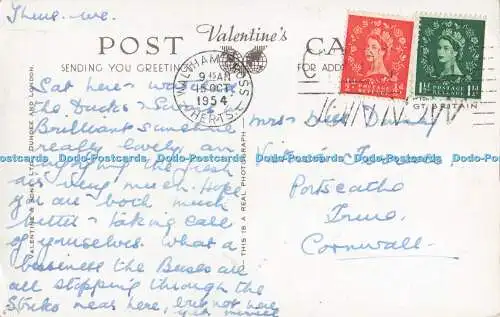 Thurs. we.
Valentine's
POST CA
SENDING YOU GREETING
FOR ADD
WALTHAM CROSS
9 15 AM
15 OCT
1954
HERTS
POSTAGE REVENUE
POSTAGE REVENUE
GT BRITAIN
Sat here
the Ducks
Brilliant Sunshine
really lovely an
enjoying the fresh
air very much. Hope
you are both much
better & taking care
of yourselves. What a
business the Buses are
all stopping through the
Strike near here, but not here
Mrs
Portscatho
Truro
Cornwall.
VALENTINE & SONS, LTD., DUNDEE AND LONDON.
— THIS IS A REAL PHOTOGRAPH —
Dodo-Postcards Dodo-Postcards Dodo-Postcards Dodo-Postcards Dodo-Postcards